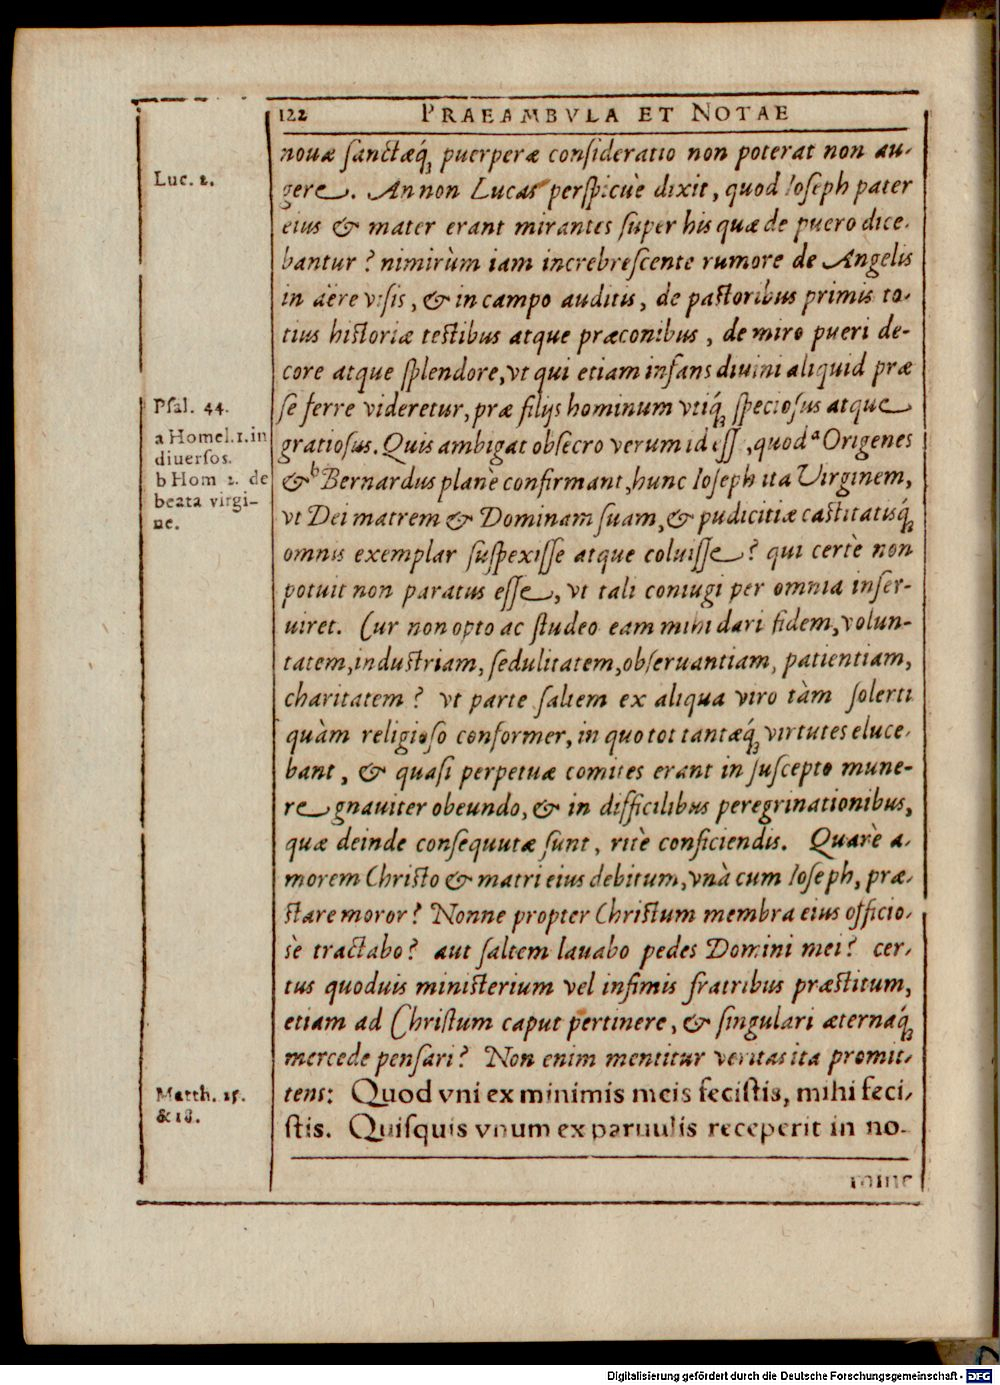 122 PRAEAMBVLA ET NOTAE
nouæ ſanctæq́; puerperæ conſideratio non poterat non au-
Luc. 2.
gere. Annon Lucas perſpicuè dixit, quod Ioſeph pater
eius & mater erant mirantes ſuper his quæ de puero dice-
bantur? nimirùm iam increbreſcente rumore de Angelis
in aëre viſis, & in campo auditis, de paſtoribus primis to-
tius hiſtoriæ teſtibus atque præconibus, de miro pueri de-
core atque ſplendore, vt qui etiam infans diuini aliquid præ
Pſal. 44.
ſe ferre videretur, præ filijs hominum vtiq́; ſpecioſus atque
a Homel. 1. in
diuerſos.
b Hom 2. de
beata virgi-
ne.
gratioſus. Quis ambigat obſecro verum id eſſe, quod a Origenes
& b Bernardus planè confirmant, hunc Ioſeph ita Virginem,
vt Dei matrem & Dominam ſuam, & pudicitiæ caſtitatisq́;
omnis exemplar ſuſpexiſſe atque coluiſſe? qui certè non
potuit non paratus eſſe, vt tali coniugi per omnia inſer-
uiret. Cur non opto ac ſtudeo eam mihi dari fidem, volun-
tatem, induſtriam, ſedulitatem, obſeruantiam, patientiam,
charitatem? vt parte ſaltem ex aliqua viro tàm ſolerti
quàm religioſo conformer, in quo tot tantæq́; virtutes eluce-
bant, & quaſi perpetuæ comites erant in ſuſcepto mune-
re gnauiter obeundo, & in difficilibus peregrinationibus,
quæ deinde conſequutæ ſunt, ritè conficiendis. Quarè a-
morem Chriſto & matri eius debitum, vnà cum Ioſeph, præ-
ſtare moror? Nonne propter Chriſtum membra eius officio-
sè tractabo? aut ſaltem lauabo pedes Domini mei? cer-
tus quoduis miniſterium vel infimis fratribus præſtitum,
etiam ad Chriſtum caput pertinere, & ſingulari æternaq́;
mercede penſari? Non enim mentitur veritas ita promit-
Matth. 25.
& 18.
tens: Quod vni ex minimis meis feciſtis, mihi feci-
ſtis. Quiſquis vnum ex paruulis receperit in no-
mine
Digitalisierung gefördert durch die Deutsche Forschungsgemeinschaft - DFG